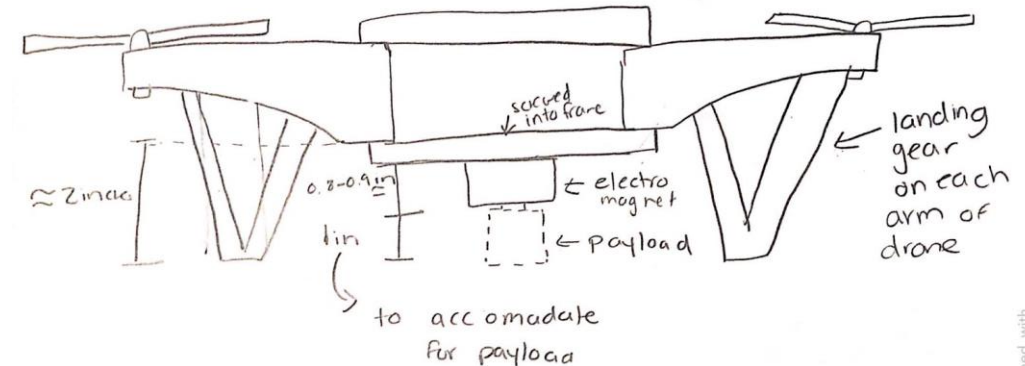 screwed
into frame
landing
gear
on each
arm of
drone
0.8-0.9in
← electro
magnet
1in
← payload
to accomadate
for payload